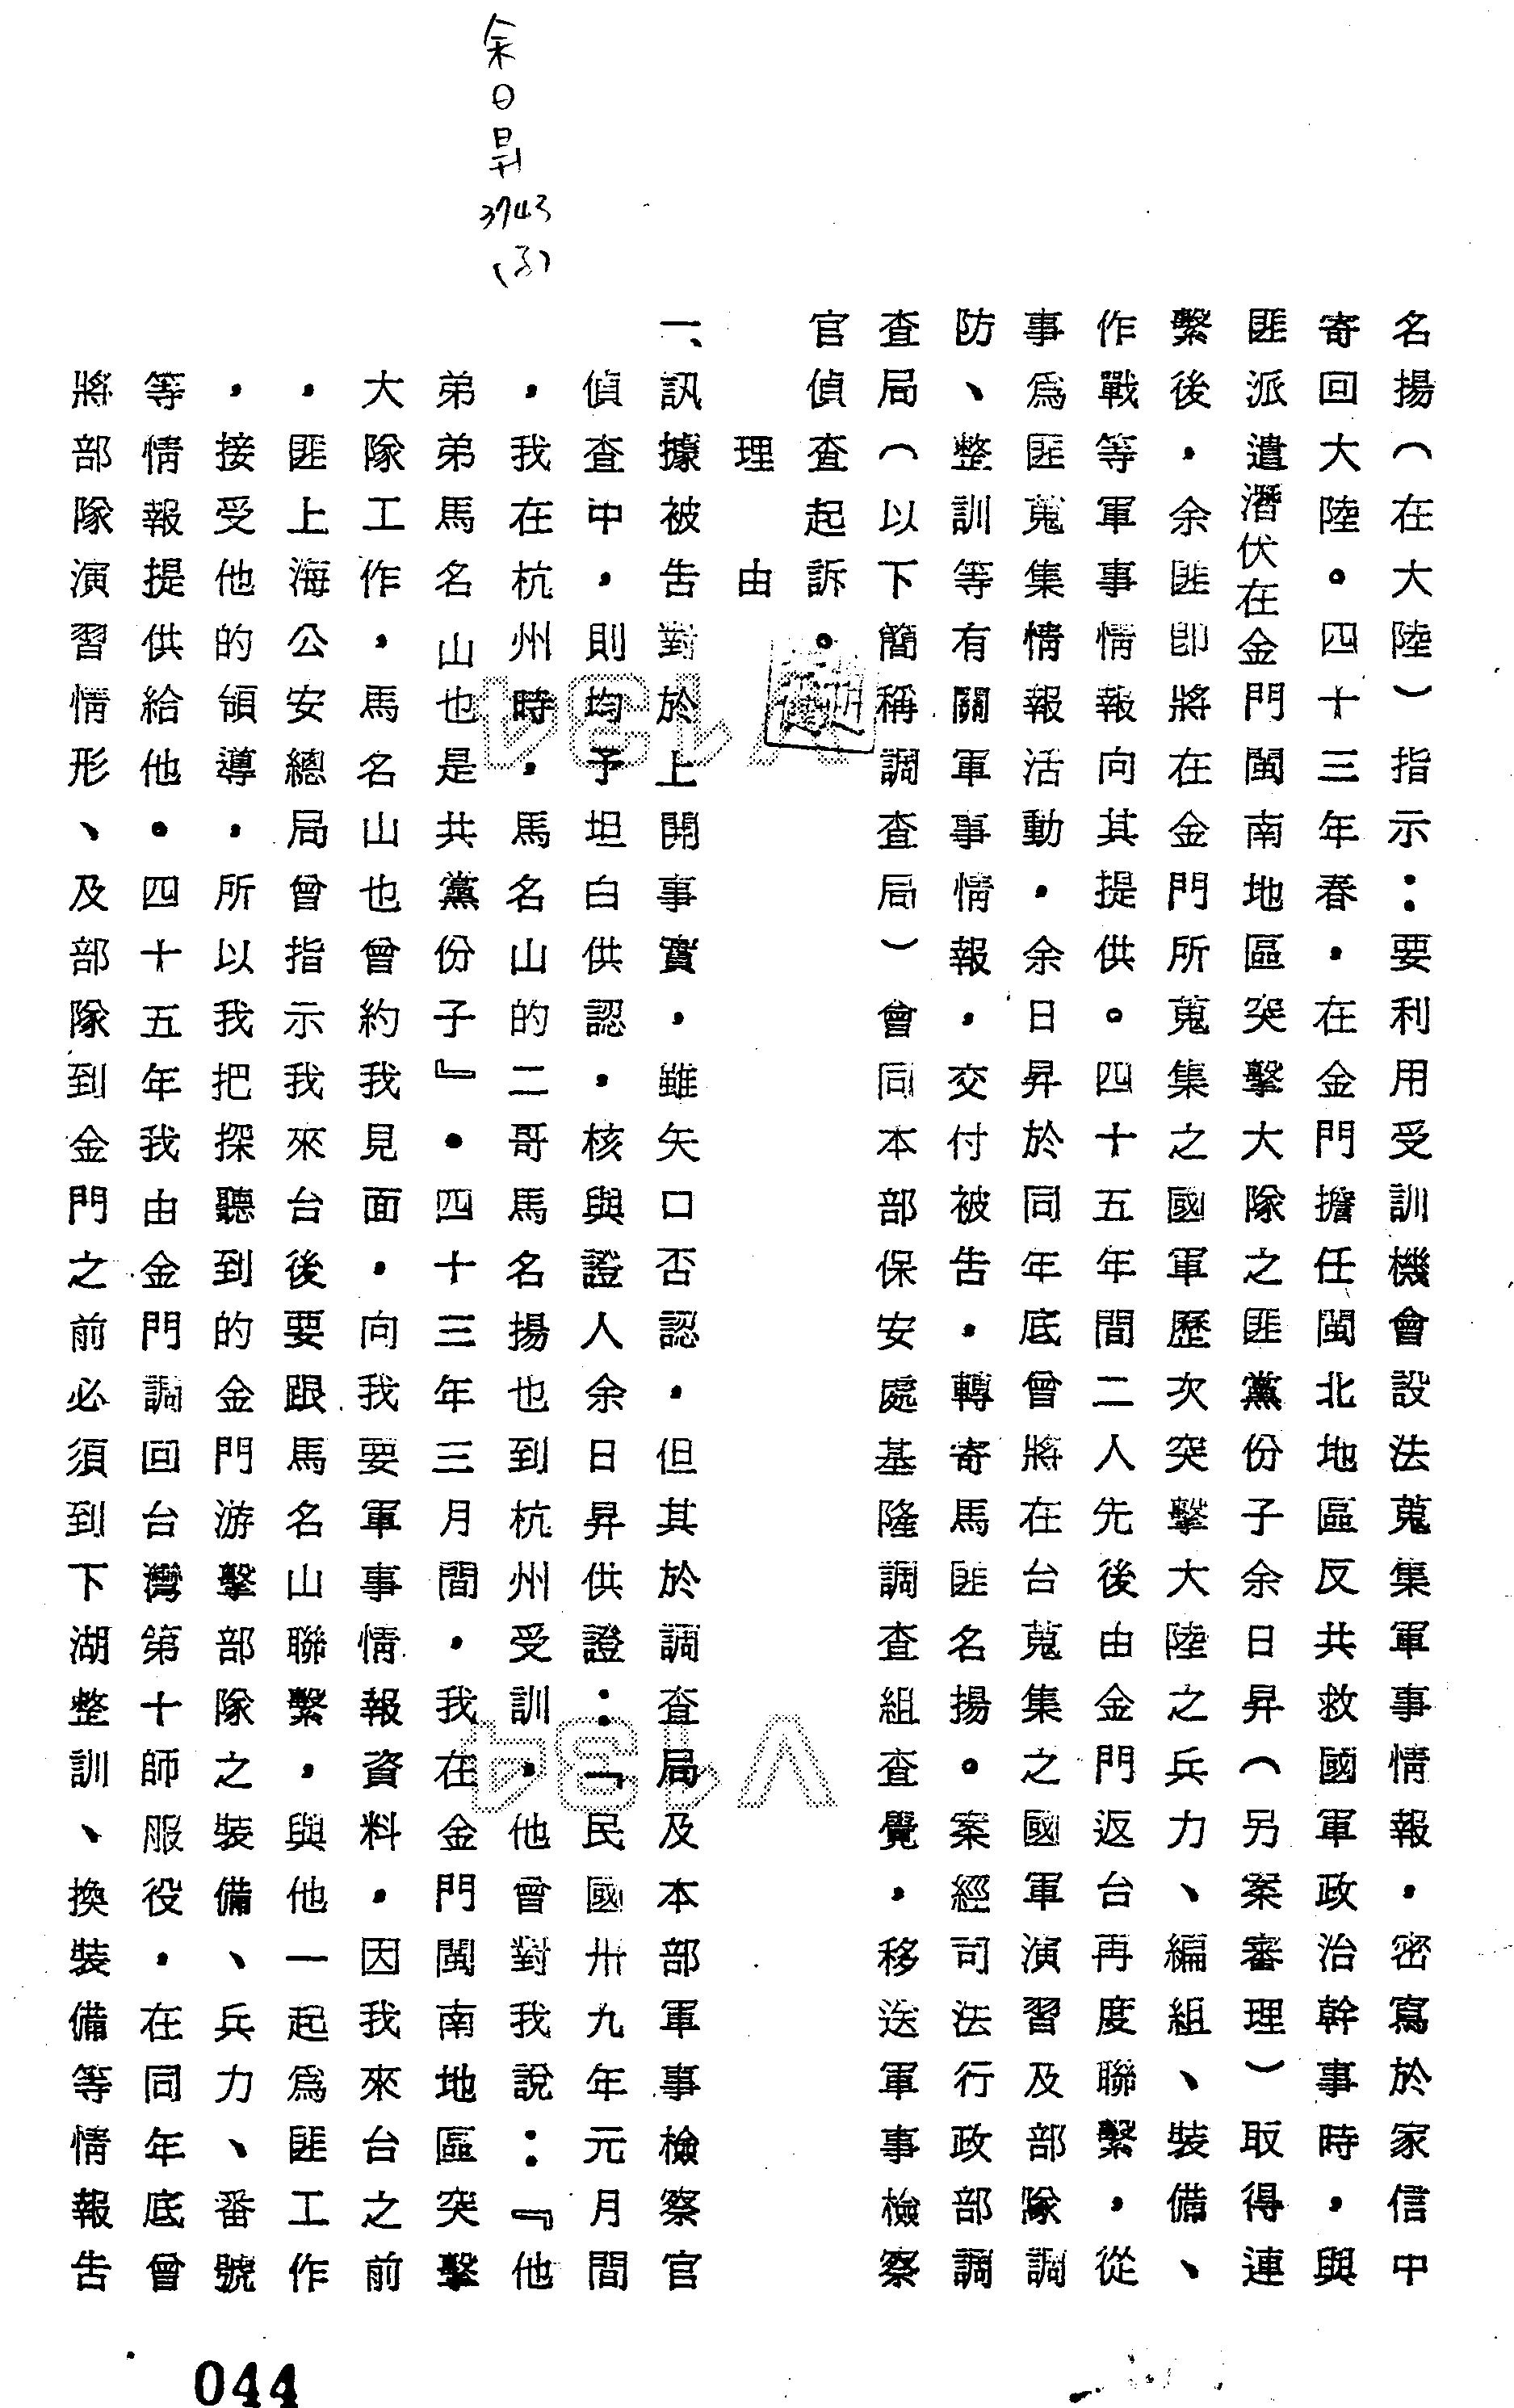 余日昇
3743
(3)
名揚(在大陸)指示：要利用受訓機會設法蒐集軍事情報，密寫於家信中
寄回大陸。四十三年春，在金門擔任閩北地區反共救國軍政治幹事時，與
匪派遣潛伏在金門閩南地區突擊大隊之匪黨份子余日昇(另案審理)取得連
繫後，余匪即將在金門所蒐集之國軍歷次突擊大陸之兵力、編組、裝備、
作戰等軍事情報向其提供。四十五年間二人先後由金門返台再度聯繫，從
事為匪蒐集情報活動，余日昇於同年底曾將在台蒐集之國軍演習及部隊調
防、整訓等有關軍事情報，交付被告，轉寄馬匪名揚。案經司法行政部調
查局(以下簡稱調查局)會同本部保安處基隆調查組查覺，移送軍事檢察
官偵查起訴。
理由
一、訊據被告對於上開事實，雖矢口否認，但其於調查局及本部軍事檢察官
偵查中，則均予坦白供認，核與證人余日昇供證：「民國卅九年元月間
，我在杭州時，馬名山的二哥馬名揚也到杭州受訓，他曾對我說：『他
弟弟馬名山也是共黨份子』。四十三年三月間，我在金門閩南地區突擊
大隊工作，馬名山也曾約我見面，向我要軍事情報資料，因我來台之前
，匪上海公安總局曾指示我來台後要跟馬名山聯繫，與他一起為匪工作
，接受他的領導，所以我把探聽到的金門游擊部隊之裝備、兵力、番號
等情報提供給他。四十五年我由金門調回台灣第十師服役，在同年底曾
將部隊演習情形、及部隊到金門之前必須到下湖整訓、換裝備等情報告
V134
V134
044